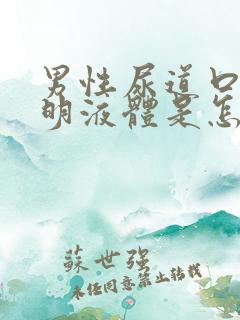 男性尿道口
明液體是怎
蘇世強
未经同意禁止转载